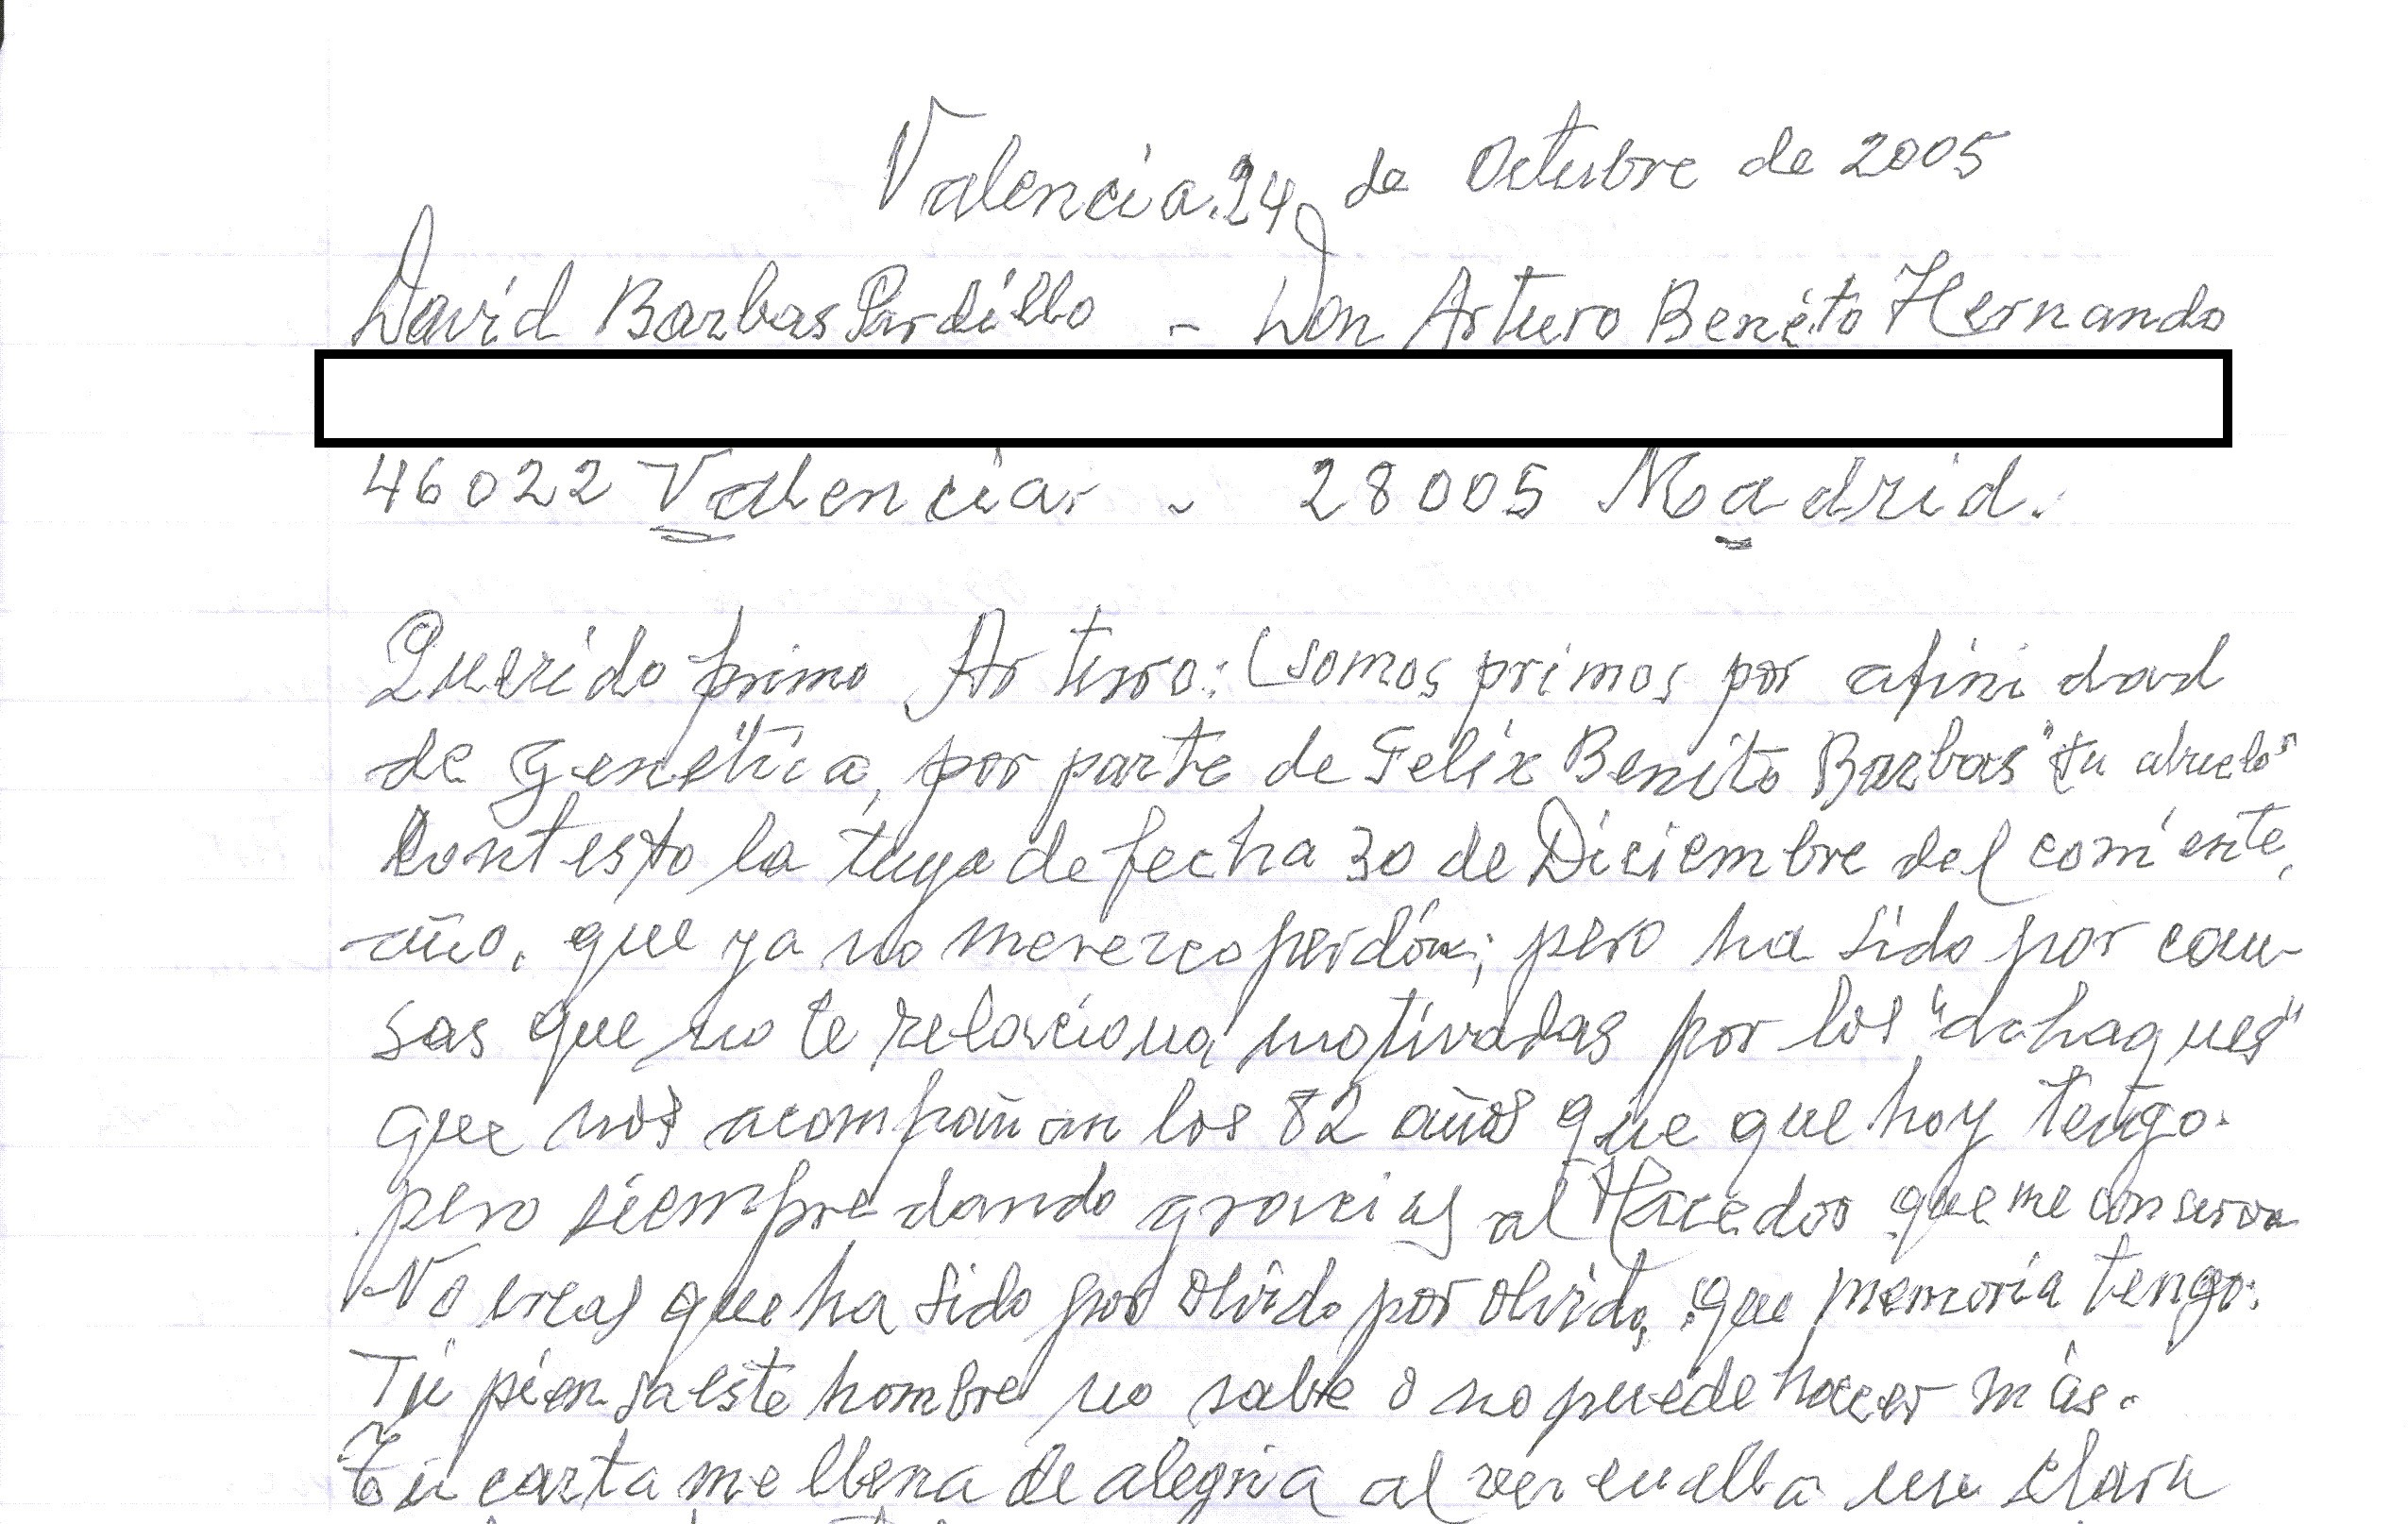 Valencia. 24 de Octubre de 2005
David Barbas Pardillo - Don Arturo Benito Hernando
46022 Valencia. - 28005 Madrid.
Querido primo Arturo: (somos primos por afinidad
de genética, por parte de Felix Benito Barbas "tu abuelo"
Contesto la tuya de fecha 30 de Diciembre del corriente,
año, que ya no merezco perdón; pero ha sido por cau-
sas que no te relaciona motivadas por los "achaques"
que nos acompañan los 82 años que que hoy tengo.
pero siempre dando gracias al Hacedor que me conserva
No creas que ha sido por olvido por olvido, que memoria tengo.
Tú piensa este hombre no sabe o no puede hacer más.
Tu carta me llena de alegria al ver en ella una clara